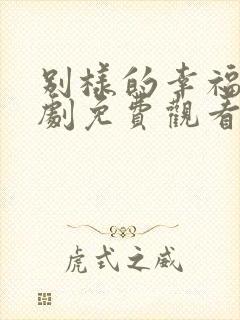 别樣的幸福
劇免費觀看
虎式之威